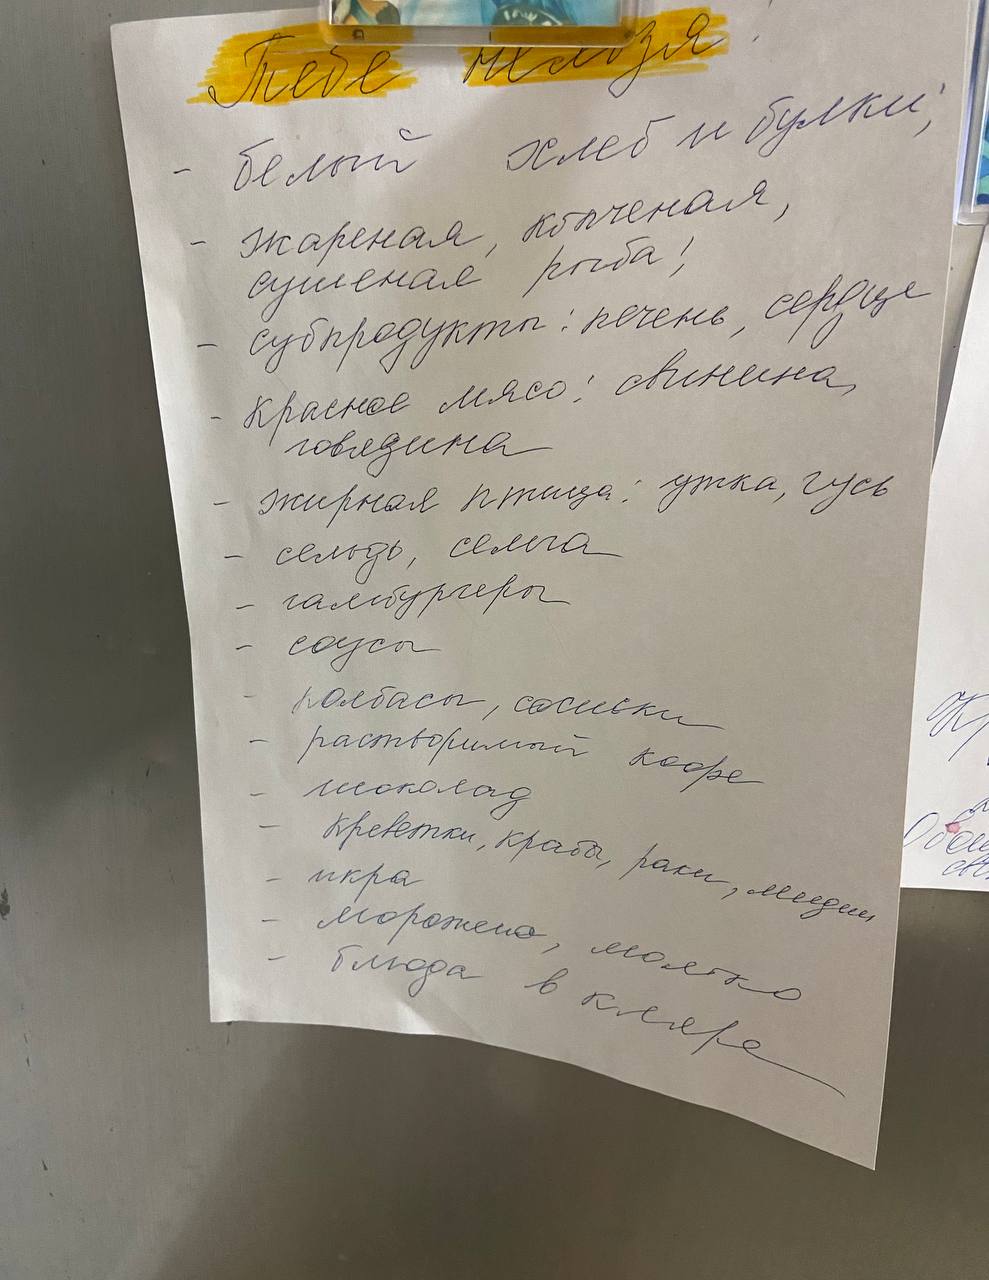 Тебе нельзя!
- белый хлеб и булки;
- жареная, копченая,
сушеная рыба!
- субпродукты: печень, сердце
- красное мясо: свинина,
говядина
- жирная птица: утка, гусь
- сельдь, семга
- гамбургеры
- соусы
- колбасы, сосиски
- растворимый кофе
- шоколад
- креветки, крабы, раки, мидии
- икра
- морожено, молоко
- блюда в кляре